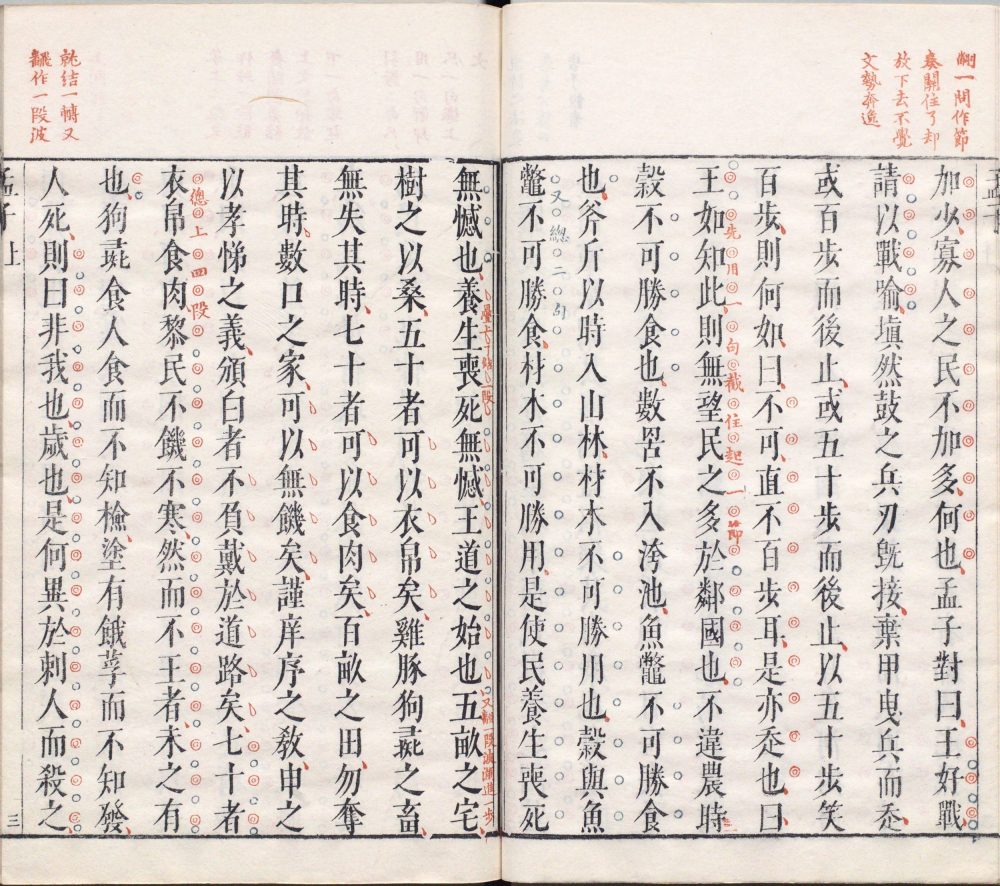 翻一問作節
奏關住了却
放下去不覺
文勢奔逸
加少寡人之民不加多何也孟子對曰王好戰
請以戰喻塡然鼓之兵刃旣接棄甲曳兵而走
或百步而後止或五十步而後止以五十步笑
百步則何如曰不可直不百步耳是亦走也曰
先用一句截住起一節
王如知此則無望民之多於鄰國也不違農時
穀不可勝食也數罟不入洿池魚鼈不可勝食
也斧斤以時入山林材木不可勝用也穀與魚
又總二句
鼈不可勝食材木不可勝用是使民養生喪死
又翻一段波瀾進一步
無憾也養生喪死無憾王道之始也五畝之宅
樹之以桑五十者可以衣帛矣雞豚狗彘之畜
無失其時七十者可以食肉矣百畝之田勿奪
其時數口之家可以無饑矣謹庠序之敎申之
以孝悌之義頒白者不負戴於道路矣七十者
總上四段
衣帛食肉黎民不饑不寒然而不王者未之有
也狗彘食人食而不知檢塗有餓莩而不知發
人死則曰非我也歲也是何異於刺人而殺之
就結一轉又
飜作一段波
孟子 上
三